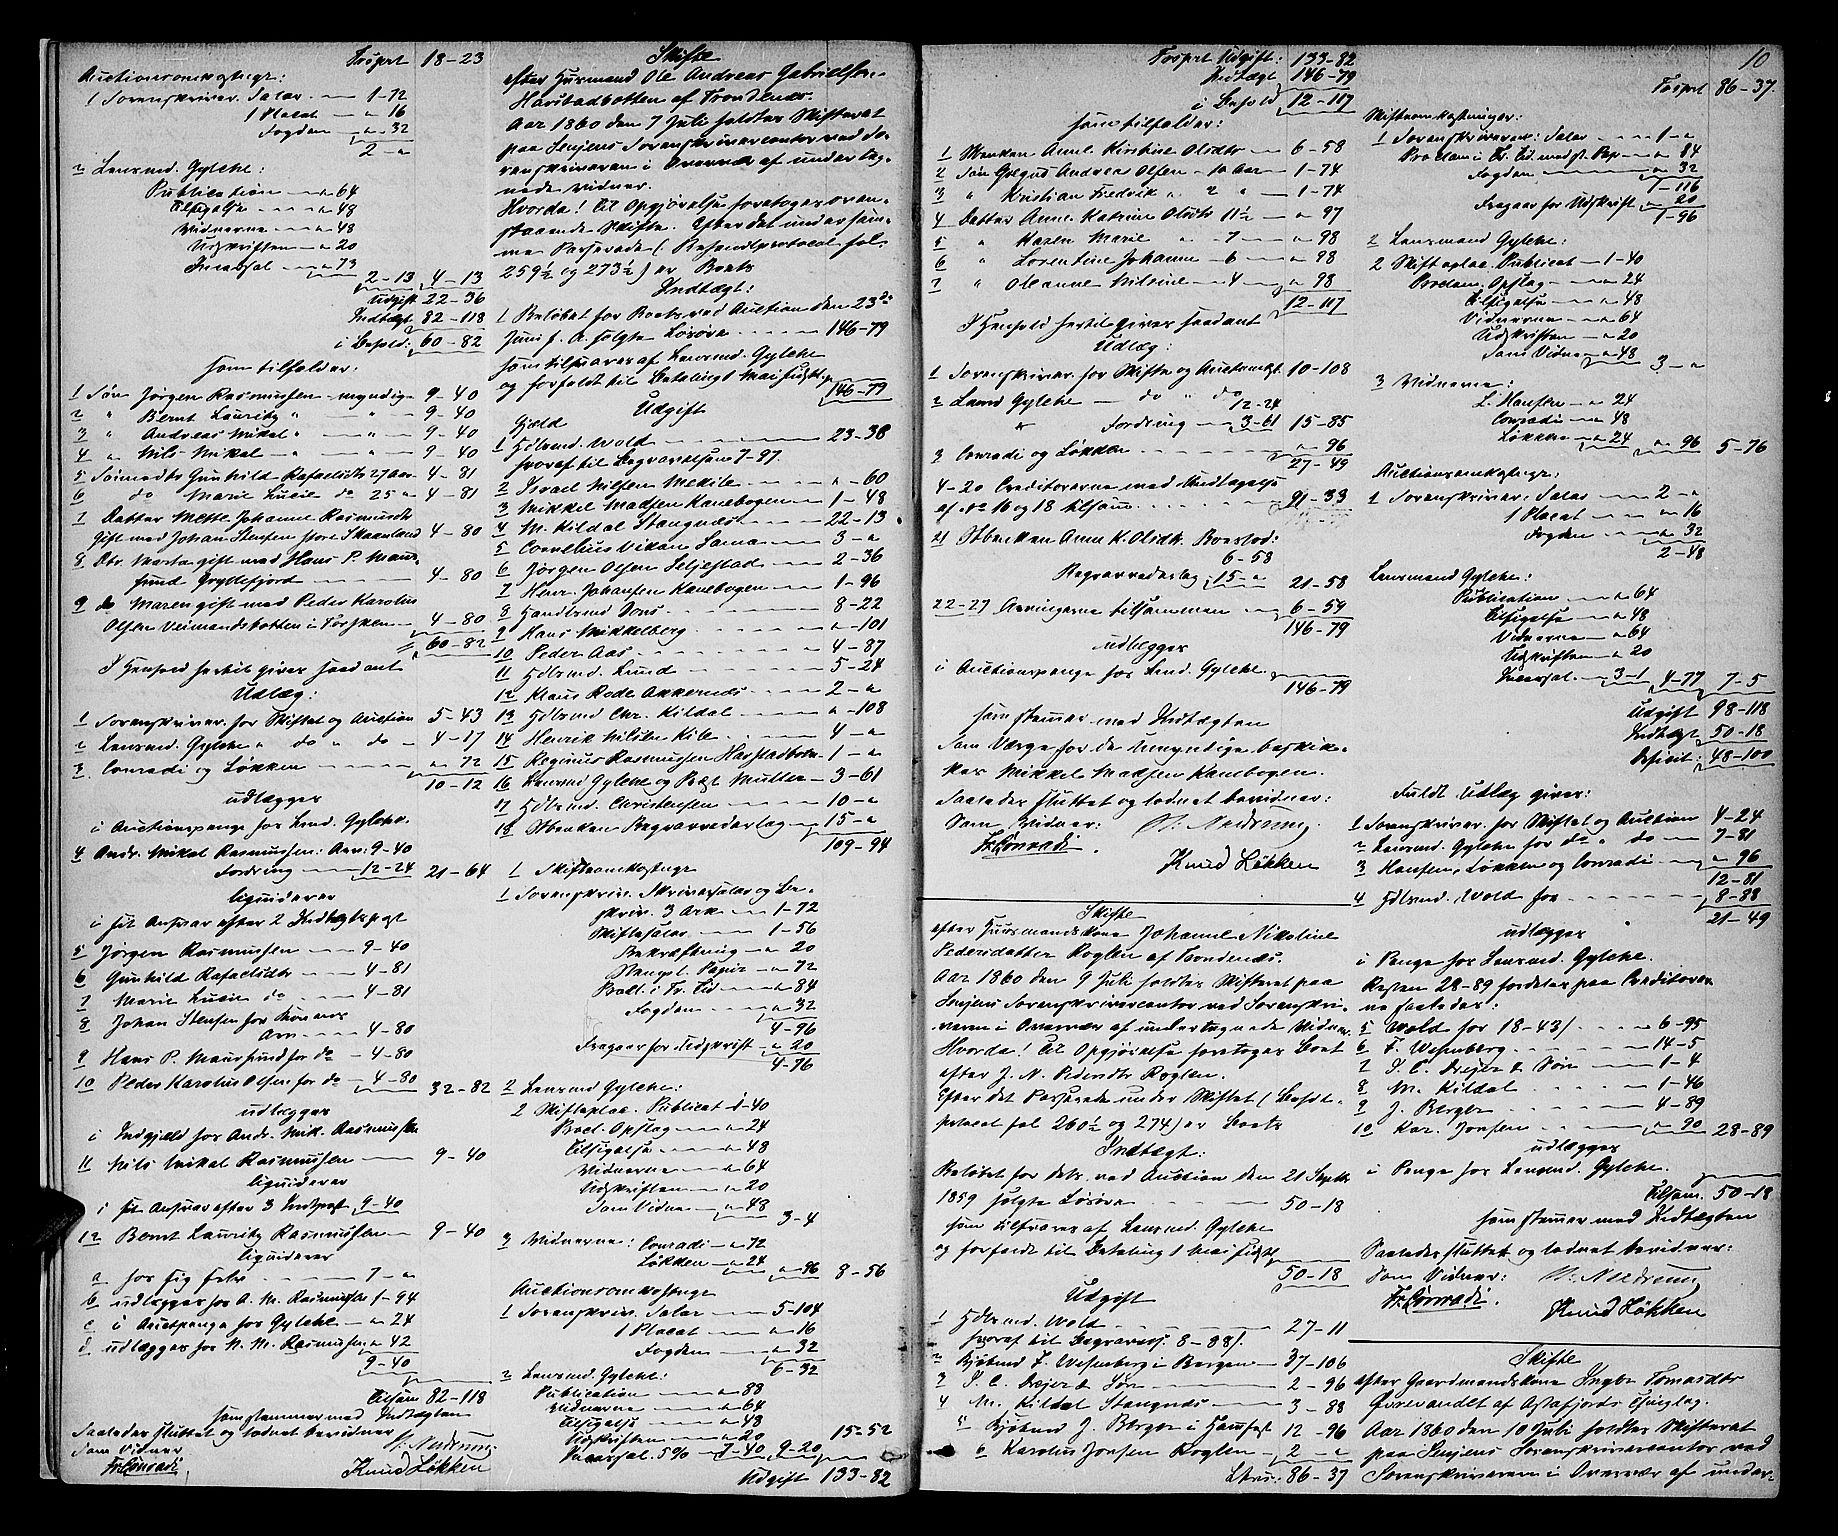 Forført 18-23
Auctionsomkostngr:
1 Sorenskriver. Salar. 1-72
1 Placat - " 16
Fogden " 32
2 - "
2 Lensmd. Gylche:
Publication " 64
Tilsigelse " 48
Vidnerne " 48
Udskriften " 20
Incassal " 73
2-13 4-13
Udgift 22-36
Indtægt 82-118
i Behold: 60-82
som tilfalder:
1 Søn Jørgen Rasmussen myndig 9-40
2 " Bernt Lauritz " " 9-40
3 " Andreas Mikal " " 9-40
4 " Nils Mikal " " 9-40
5 Sønnedtr Gunhild Rafaelsdtr 27 Aar 4-81
6 do Marie Lucie do 25 " 4-81
7 Datter Mette Johanne Rasmusdtr
gift med Johan Stensen store Skaanland 4-80
8 Dtr. Marta gift med Hans P. Maur-
sund Gryllefjord 4-80
9 do Maren gift med Peder Karolius
Olsen Veimandsbotten i Torsken 4-80
60-82
I Henhold hertil gives saadant
Udlæg:
1 Sorenskriver. for Skiftet og Auction 5-43
2 Lensmd. Gylche " do " do 4-17
3 Conradi og Løkken " 72
10-12
udlægges
i Auctionspenge hos Lnd. Gylche.
4 Andr. Mikal Rasmussen: Arv: 9-40
Fordring 12-24 21-64
liqviderer
i sit Ansvar efter 2 Indtægtspost
5 Jørgen Rasmussen 9-40
6 Gunhild Rafaelsdtr 4-81
7 Marie Lucie do 4-81
8 Johan Stensen for Kones
Arv 4-80
9 Hans P. Maursund for do 4-80
10 Peder Karolius Olsen for do 4-80 32-82
udlægges
i Indgjæld hos Andr. Mik. Rasmussen
11 Nils Mikal Rasmussen 9-40
liqviderer
i sit Ansvar efter 3 Indtpost 9-40
12 Bernt Lauritz Rasmussen 9-40
liqviderer
a hos sig selv 7 - "
b udlægges hos A. M. Rasmussen 1-94
c i Auctpenge hos Gylche " 24
d udlægges hos N. M. Rasmussen " 42
9-40
Tilsam 82-118
som stemmer med Indtægten
Saaledes sluttet og lodnet bevidner
Som Vidner
Fr. Conradi. Knud Løkken

Skifte
efter Husmand Ole Andreas Gabrielsen
Harstadbotten af Trondenæs.
Aar 1860 den 7 Juli holdtes Skifteret
paa Senjens Sorenskrivercontor ved So-
renskriveren i Overvær af underteg-
nede Vidner.
Hvorda! Til Opgjørelse foretoges oven-
staaende Skifte. Efter det under sam-
me Passerede (Behandlprotocol fol.
259½ og 273½) er Boets
Indtægt:
1 Beløbet for Boets ved Auction den 23de
Juni f. A. solgte Løsøre 146-79
som tilsvares af Lensmd. Gylche
og forfaldt til Betaling 1 Mai sidstl. 146-79
Udgift
Gjæld
1 Hdlsmd. Wold 23-38
hvoraf til Begravelsen 7-97.
2 Israel Nilsen Mekile " 60
3 Mikkel Madsen Kanebogen 1-48
4 M. Kildal Stangnæs 22-13
5 Cornelius Vikan Sama 3 - "
6 Jørgen Olsen Seljestad 2-36
7 Henr. Johansen Kanebogen 1-96
8 Handlsmd Dons 8-22
9 Hans Mikkelberg " 101
10 Peder Aas 4-87
11 Hdlsmd. Lund 5-24
12 Klaus Rode Akkernæs 2 - "
13 Hdlsmd Chr. Kildal " 108
14 Henrik Nilsen Kile 4 - "
15 Reginus Rasmussen Harstadbotn 1 - "
16 Lensmd Gylche og Præst Müller 3-61
17 Hdlsmd. Christensen 10 - "
18 Stbenken Begravvederlag 15 - "
109-94
1 Skifteomkostnger
1 Sorenskriv. Skriversalar og Be-
skriv. 3 Ark 1-72
Skiftesalar 1-56
Bekræftning " 20
Stempl. Papir " 72
Bodl. i Tr. Tid " 84
Fogden " 32
4-96
Fragaar for Udskrift " 20
4-76
2 Lensmd. Gylche:
2 Skifteplac. Publicat 1-40
Bocl. Opslag " 24
Tilsigelse " 48
Vidnerne " 64
Udskriften " 20
Som Vidne " 48
3-4
3 Vidnerne: Conradi " 72
Løkken " 24 " 96 8-56
Auctionsomkostnge
1 Sorenskriv. Salar 5-104
1 Placat " 16
Fogden " 32
6-32
2 Lensmd. Gylche:
Publication " 88
Vidnerne " 64
Tilsigelse " 48
Udskriften " 20
Incassal. 5% 7-40 9-20 15-52
Udgift 133-82

Forført Udgift: 133-82
Indtægt 146-79
i Behold 12-117
som tilfalder:
1 Stenken Anne Kirstine Olsdtr 6-58
2 Søn Andreas Olsen 10 Aar 1-74
3 " Kristian Fredrik " 2 " 1-74
4 Datter Anne Katrine Olsdtr 11½ " 97
5 " Karen Marie " 7 " 98
6 " Lorentine Johanne 6 " 98
7 " Oleanne Nilsine 4 " 98
12-117
I Henhold hertil gives saadant
Udlæg:
1 Sorenskriver. for Skifte og Auctomkst 10-108
2 Lensmd Gylche do do
12-24
" Fordring 3-61 15-85
3 Conradi og Løkken " 96
27-49
4-20 Creditorerne med Undtagelse
af No 16 og 18 tilsam. 91-33
21 Stbenken Anne K. Olsdtr. Boeslod:
6-58
Begravvederlag 15 - " 21-58
22-27 Arvingerne tilsammen 6-59
146-79
udlægges
i Auctionspenge hos Lmd. Gylche. 146-79
som stemmer med Indtægten
Som Værge for de Umyndige beskik-
kes Mikkel Madsen Kanebogen.
Saaledes sluttet og lodnet bevidner:
Som Vidner:
Fr. Conradi. Knud Løkken

Skifte
efter Huusmandskone Johanne Nikoline
Pedersdatter Roglen af Trondenæs.
Aar 1860 den 9 Juli holdtes Skifteret paa
Senjens Sorenskrivercontor ved Sorenskri-
veren i Overvær af undertegnede Vidner.
Hvorda! Til Opgjørelse foretoges Boet
efter J. N. Pedersdtr Roglen.
Efter det Passerede under Skiftet (Behdl-
protocol fol 260½ og 274) er Boets
Indtægt:
Beløbet for dets ved Auction den 21 Septbr.
1859 solgte Løsøre 50-18
som tilsvares af Lensmd. Gylche
og forfaldt til Betaling 1 Mai sidstl.
50-18
Udgift
1 Hdlsmd. Wold 27-11
hvoraf til Begravels. 8-88/.
2 Kjøbmd F. Wesenberg i Bergen 37-106
3 J. C. Dreyer & Søn 2-96
4 M. Kildal Stangnæs 3-88
5 Kjøbmd J. Berger i Hamfest 12-96
6 Karolius Jonsen Roglen 2 - "
Latus: 86-37

10
Forført 86-37.
Skifteomkostninger:
1 Sorenskriveren: Salar 1 - "
Proclam i Tr. Tid. med st. Pap. " 84
Fogden " 32
1-116
Fragaar for Udskrift " 20
1-96
2 Lensmand Gylche:
2 Skifteplac. Publicat 1-40
Proclam. Opslag " 24
Tilsigelse " 48
Vidnerne " 64
Udskriften " 20
Som Vidne " 48
3 - "
3 Vidnerne:
L. Hansen " 24
Conradi " 48
Løkken " 24 " 96 5-76
Auctionsomkostnger:
1 Sorenskriver: Salar 2 - "
1 Placat " 16
Fogden " 32
2-48
Lensmand Gylche:
Publication " 64
Tilsigelse " 48
Vidnerne " 64
Udskriften " 20
Incassal. 3-1 4-77 7-5
Udgift 98-118
Indtægt 50-18
Deficit: 48-100
Fuldt Udlæg gives:
1 Sorenskriver. for Skiftet og Auction 4-24
2 Lensmd. Gylche for do " do 7-81
3 Hansen, Løkken og Conradi " 96
12-81
4 Hdlsmd. Wold for 8-88
21-49
udlægges
i Penge hos Lensmd. Gylche.
Resten 28-89 fordeles paa Creditorer-
ne saaledes:
5 Wold for 18-43/ 6-95
6 F. Wesenberg 14-5
7 J. C. Dreyer & Søn 1-4
8 M. Kildal 1-46
9 J. Berger 4-89
10 Kar. Jonsen " 90 28-89
udlægges
i Penge hos Lensmd. Gylche.
Tilsam. 50-18
som stemmer med Indtægten
Saaledes sluttet og lodnet bevidner:
Som Vidner:
Fr. Conradi. Knud Løkken

Skifte
efter Gaardmandskone Ingbr Tomasdtr
Øvrevandet af Astafjords Thinglag.
Aar 1860 den 10 Juli holdtes Skifteret
paa Senjens Sorenskrivercontor ved
Sorenskriveren i Overvær af under-